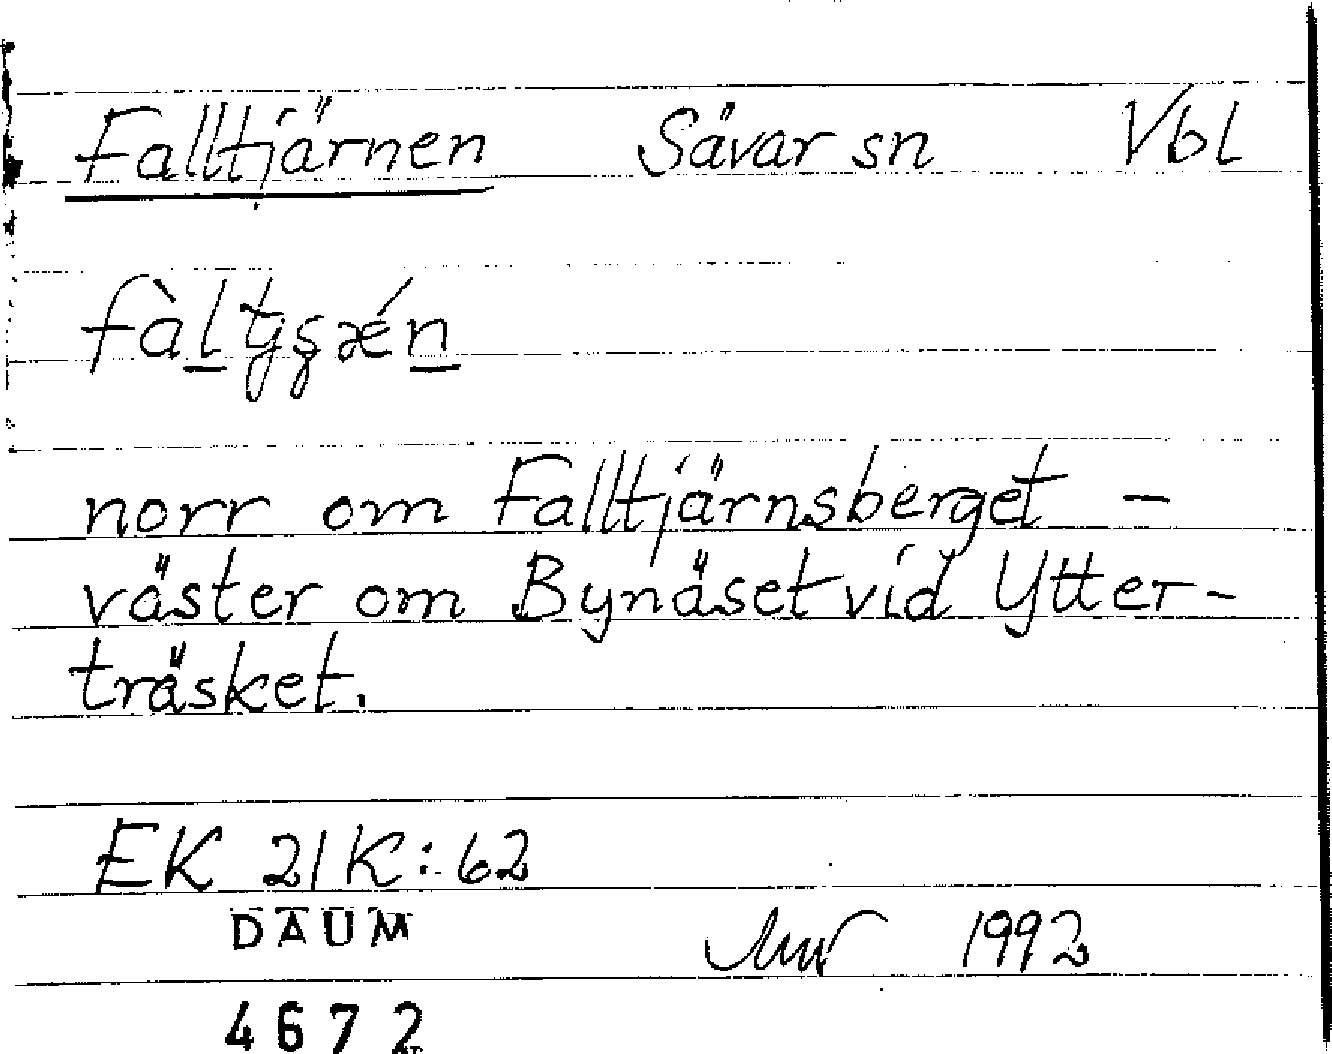 Falltjärnen Sävar sn Vbl
norr om Falltjärnsberget -
väster om Bynäset vid Ytter-
träsket.
EK 21K:62
DAUM
1992
4672